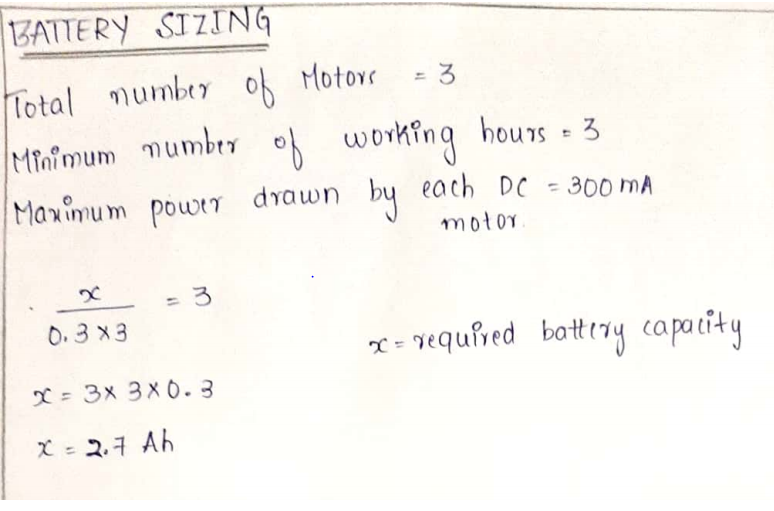 BATTERY SIZING
Total number of Motors = 3
Minimum number of working hours = 3
Maximum power drawn by each DC = 300 mA
motor.
x / 0.3 × 3 = 3
x = required battery capacity
x = 3 × 3 × 0.3
x = 2.7 Ah